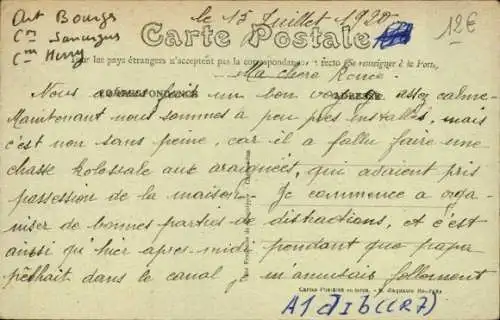 le 15 Juillet 1920
Art Bourges
Con Sancergues
Con Henry
12€
Carte Postale
Tous les pays étrangers n'acceptent pas la correspondance au recto (Se renseigner à la Poste)
Ma chère Renée
CORRESPONDANCE
ADRESSE
Nous avons fait un bon voyage assez calme.
Maintenant nous sommes à peu près installés, mais
c'est non sans peine, car il a fallu faire une
chasse kolossale aux araignées, qui avaient pris
possession de la maison. Je commence a orga-
niser de bonnes parties de distractions, et c'est
ainsi qu'hier après-midi pendant que papa
pêchait dans le canal je m'amusais follement
A1d1b(CR7)